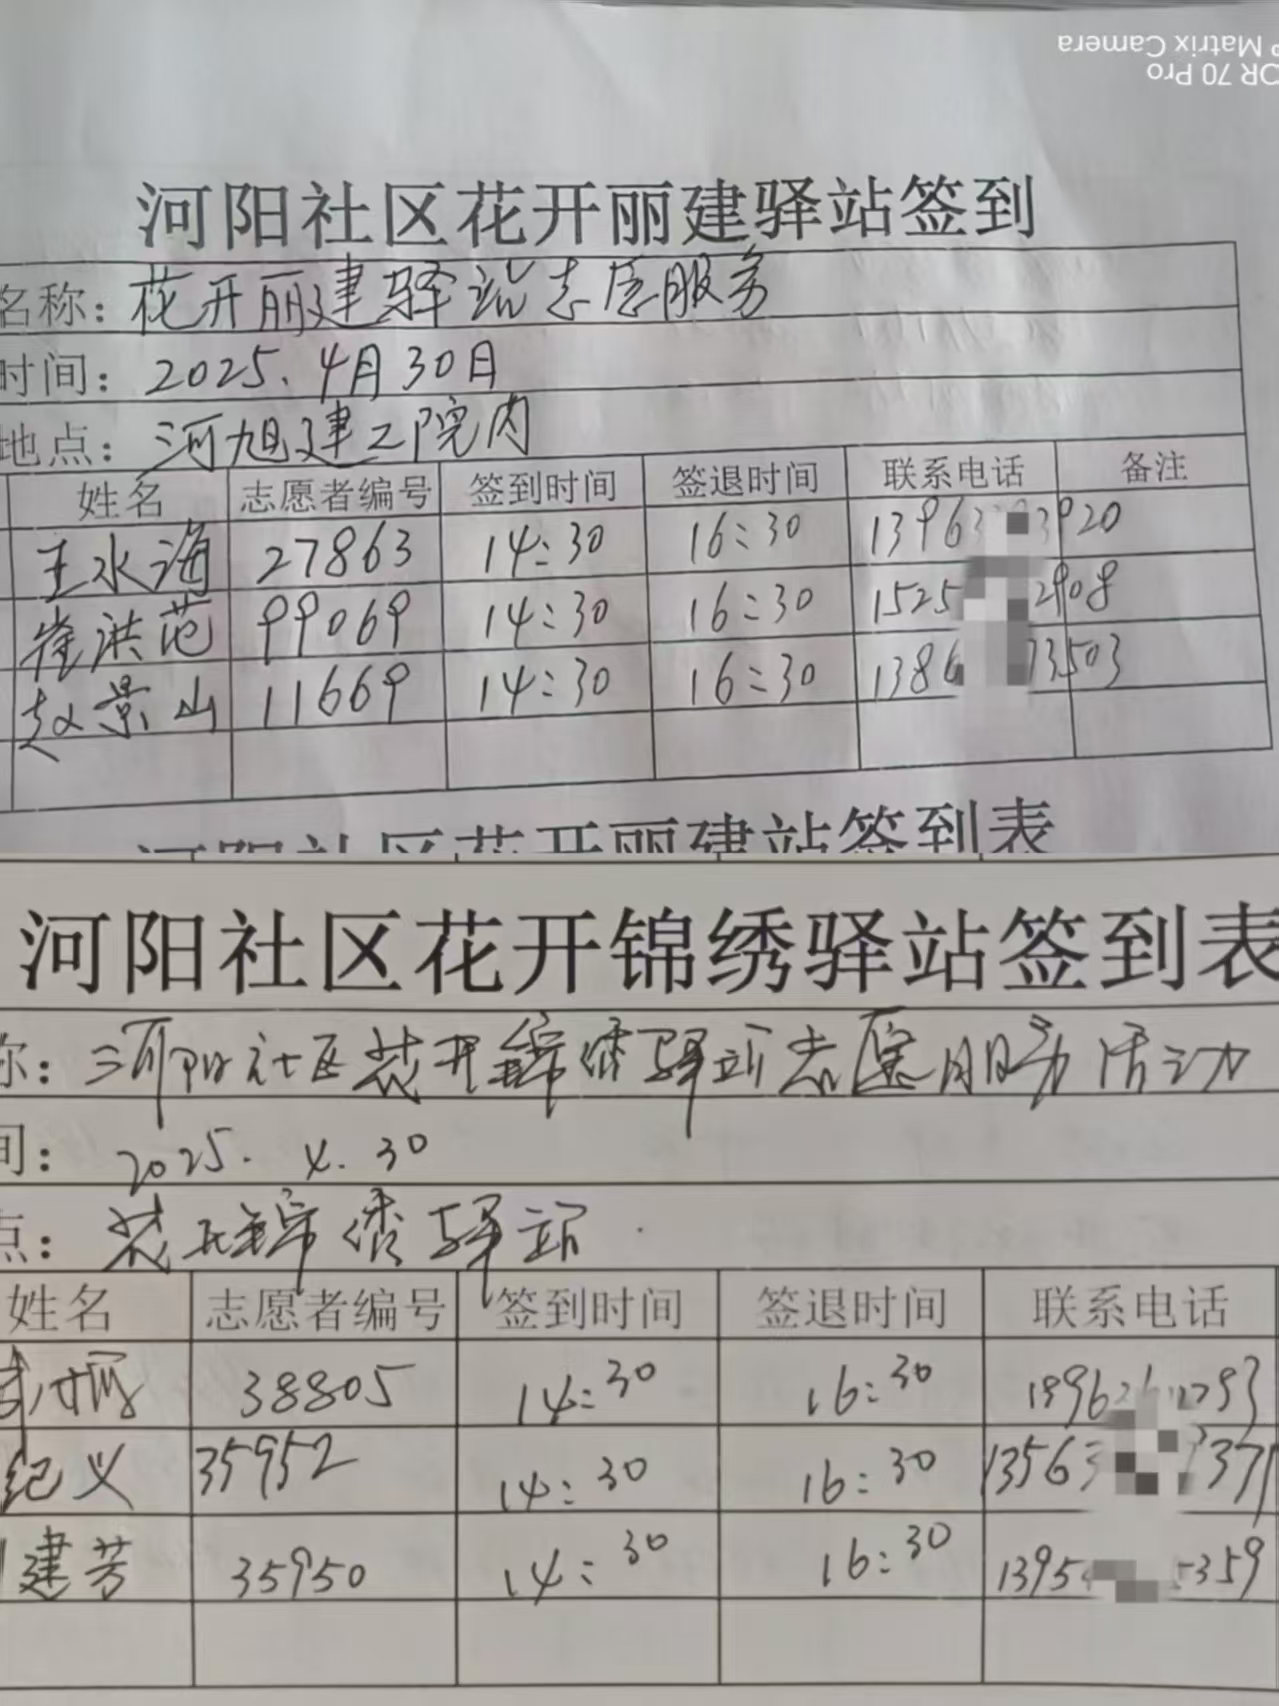 OR 70 Pro
Matrix Camera
河阳社区花开丽建驿站签到
名称：花开丽建驿站志愿服务
时间：2025.4月30日
地点：河旭建工院内
姓名 志愿者编号 签到时间 签退时间 联系电话 备注
王水海 27863 14:30 16:30 13963 3920
崔洪范 99069 14:30 16:30 1525 2908
赵景山 11669 14:30 16:30 1386 73503
河阳社区花开丽建站签到表
河阳社区花开锦绣驿站签到表
称：河阳社区花开锦绣驿站志愿服务活动
间：2025.4.30
点：花开锦绣驿站
姓名 志愿者编号 签到时间 签退时间 联系电话
38805 14:30 16:30
纪义 35952 14:30 16:30 13563 371
建芳 35950 14:30 16:30 1395 5359